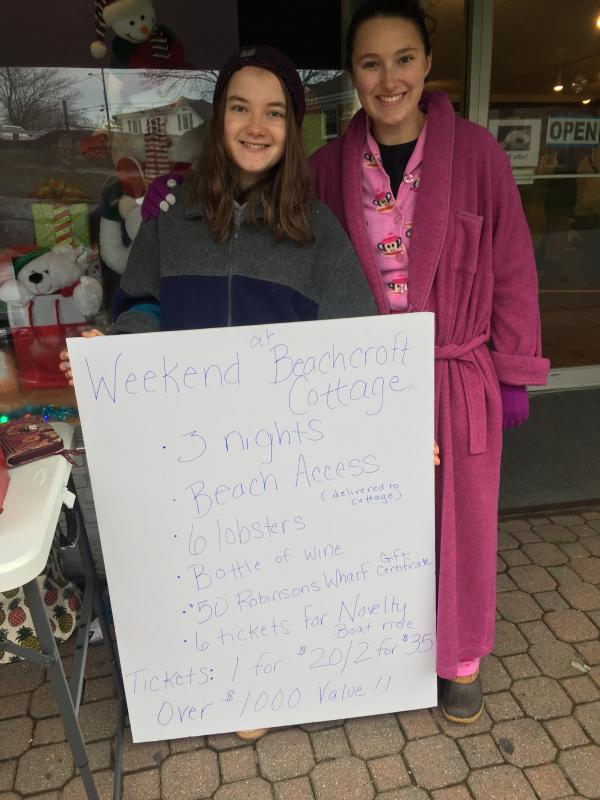 OPEN
Coffee!
at
Weekend Beachcroft
Cottage
· 3 nights
· Beach Access
(delivered to
cottage)
· 6 lobsters
· Bottle of wine
· $50 Robinsons Wharf Gift
Certificate
· 6 tickets for Novelty
Boat ride
Tickets: 1 for $20/2 for $35
Over $1000 Value !!